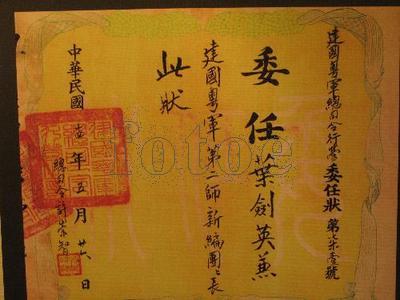 建國粵軍總司令行營委任狀 第七壹號
委任葉劍英兼
建國粵軍第二師新編團團長
此狀
中華民國 年五月廿 日
總司令許崇智
fotoe